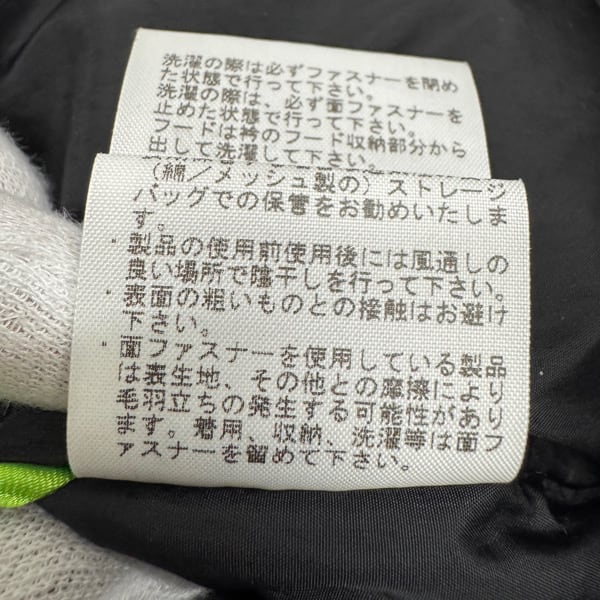 洗濯の際は必ずファスナーを閉め
た状態で行って下さい。
洗濯の際は、必ず面ファスナーを
止めた状態で行って下さい。
フードは衿のフード収納部分から
出して洗濯して下さい。
（綿／メッシュ製の）ストレージ
バッグでの保管をお勧めいたしま
す。
・製品の使用前使用後には風通しの
良い場所で陰干しを行って下さい。
・表面の粗いものとの接触はお避け
下さい。
・面ファスナーを使用している製品
は表生地、その他との摩擦により
毛羽立ちの発生する可能性があり
ます。着用、収納、洗濯等は面フ
ァスナーを留めて下さい。